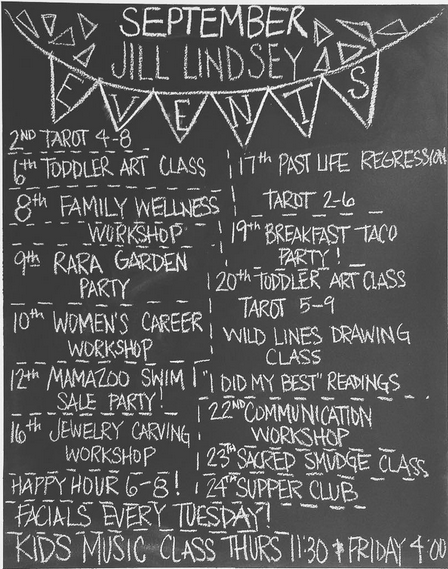 SEPTEMBER
JILL LINDSEY
EVENTS
2ND TAROT 4-8
6th TODDLER ART CLASS
8th FAMILY WELLNESS
WORKSHOP
9th RARA GARDEN
PARTY
10th WOMEN'S CAREER
WORKSHOP
12th MAMAZOO SWIM
SALE PARTY!
16th JEWELRY CARVING
WORKSHOP
HAPPY HOUR 6-8!
17th PAST LIFE REGRESSION
TAROT 2-6
19th BREAKFAST TACO
PARTY!
20th TODDLER ART CLASS
TAROT 5-9
WILD LINES DRAWING
CLASS
"I DID MY BEST" READINGS
22ND COMMUNICATION
WORKSHOP
23th SACRED SMUDGE CLASS
24th SUPPER CLUB
FACIALS EVERY TUESDAY!
KIDS MUSIC CLASS THURS 11:30 & FRIDAY 4:00